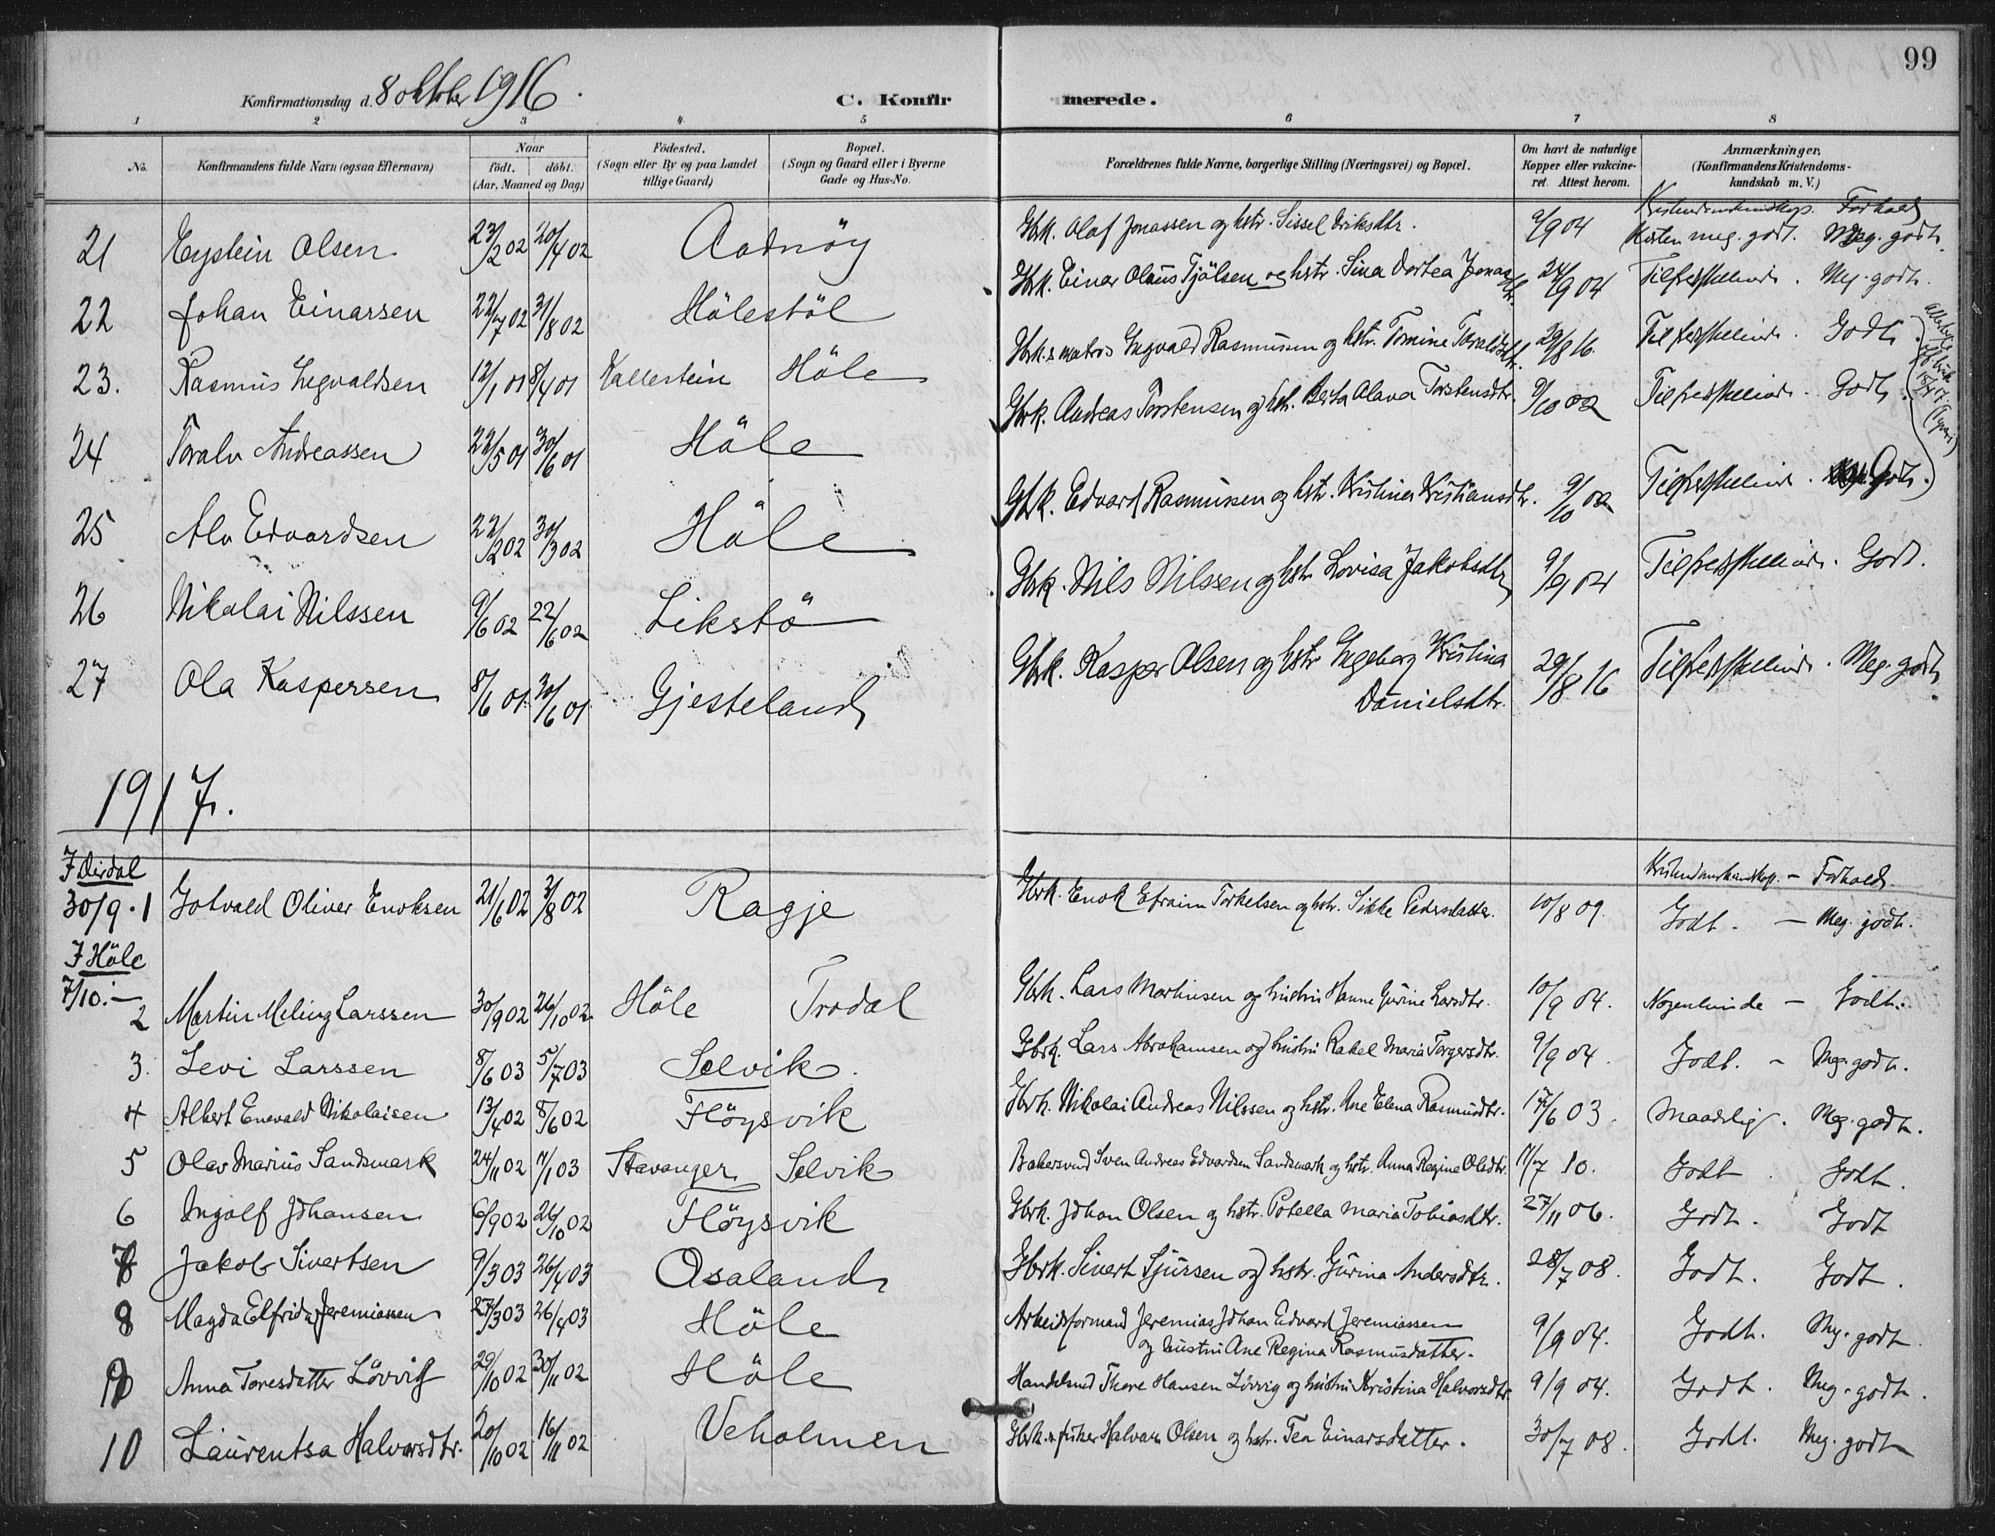 99
Konfirmationsdag d. 8 oktober 1916.
C. Konfirmerede.
1 2 3 4 5 6 7 8
No. Konfirmandens fulde Navn (ogsaa Efternavn) Naar født. døbt. (Aar, Maaned og Dag) Fødested. (Sogn eller By og paa Landet tillige Gaard) Bopæl. (Sogn og Gaard eller i Byerne Gade og Hus-No. Forældrenes fulde Navne, borgerlige Stilling (Næringsvei) og Bopæl. Om havt de naturlige Kopper eller vakcineret Attest herom. Anmærkninger, (Konfirmandens Kristendomskundskab m. V.)
Kristendomskundskap. Forhold
21 Eystein Olsen 23/2 02 20/4 02 Adnöy Gbrk. Olaf Jonassen og hstr. Sissel Eriksdtr. 9/9 04 meg. godt. Meg. godt.
22 Johan Einarsen 22/7 02 31/8 02 Hölestöl Gbrk. Einar Olaus Tjölsen og hstr. Sina Dortea Jonasdtr. 24/9 04 Tilfredsstillende. Meg. godt.
23. Rasmus Ingvaldsen 12/1 01 8/4 01 Kallestein Höle Gbrk. & matros Ingvald Rasmussen og hstr. Tomine Taraldsdtr. 29/8 16. Tilfredsstillende. Godt.
24 Toralv Andreassen 22/5 01 30/6 01 Höle Gbrk. Andreas Torstensen og hstr. Berta Olava Torstensdtr. 9/10 02 Tilfredsstillende. Godt.
25 Alv Edvardsen 22/2 02 30/3 02 Höle Gbrk. Edvard Rasmussen og hstr. Kristine Kristiansdtr. 9/10 02 Tilfredsstillende. Godt.
26 Nikolai Nilssen 9/6 02 22/6 02 Likstö Gbrk. Nils Nilssen og hstr. Lovisa Jakobsdtr 9/9 04 Tilfredsstillende. Godt.
27 Ola Kaspersen 8/6 01 30/6 01 Gjesteland Gbrk. Kasper Olsen og hstr Ingeborg Kristina Danielsdtr. 29/8 16 Tilfredsstillende. Meg. godt.
1917.
Kristendomskundskap. – Forhold.
I Dirdal
30/9. 1 Gotvald Oliver Enoksen 21/6 02 3/8 02 Ragje Gbrk. Enok Efraim Torkelsen og hstr. Sikke Pedersdatter. 10/8 09. Godt. – Meg. godt.
I Höle
7/10. – 2 Martin Meling Larssen 30/9 02 26/10 02 Höle Trodal Gbrk. Lars Martinsen og hustru Hanne Gurine Larsdtr. 10/9 04. Nogenlunde – Godt.
3. Levi Larssen 8/6 03 5/7 03 Selvik. Gbrk. Lars Abrahamsen og hustru Rakel Maria Torgersdtr. 9/9 04. Godt. – Meg. godt.
4 Albert Enevald Nikolaisen 13/4 02 8/6 02 Flöysvik Gbrk. Nikolai Andreas Nilssen og hstr. Ane Elena Rasmusdtr. 17/6 03. Maadelig. Meg. godt.
5 Olav Marius Sandsmark 24/11 02 7/1 03 Stavanger Selvik Bakersvend Sven Andreas Edvardsen Sandsmark og hstr. Anna Regine Olsdtr. 11/7 10. Godt Godt.
6 Ingolf Johansen 6/9 02 26/10 02 Flöysvik Gbrk. Johan Olsen og hstr. Potella Maria Tobiasdtr. 27/11 06. Godt. Godt
7 Jakob Sivertsen 9/3 03 26/4 03 Asaland Gbrk. Sivert Sjursen og hstr. Gurina Andersdtr. 28/7 08. Godt. Godt.
8 Magda Elfrida Jeremiassen 27/3 03 26/4 03 Höle Arbeidsformand Jeremias Johan Edvard Jeremiassen og hustru Ane Regina Rasmusdatter. 9/9 04. Godt. Meg. godt
9 Anna Toresdatter Lövvig 29/10 02 30/11 02 Höle Handelsmd Thore Hansen Lövvig og hustru Kristina Halvorsdtr. 9/9 04. Godt. Meg. godt.
10 Laurentsa Halvorsdtr. 20/10 02 16/11 02 Veholmen Gbrk. & fisker Halvar Olsen og hstr. Tea Einarsdatter. 30/7 08. Godt. Meg. godt